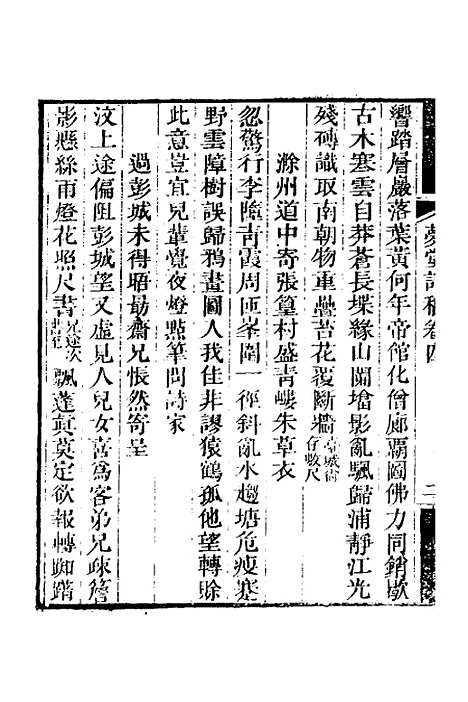 夢堂詩稿卷四
二
響踏層巖落葉黃何年帝館化僧廊霸圖佛力同銷歇
古木寒雲自莽蒼長堞緣山闌檐影亂颿歸浦靜江光
殘磚識取南朝物重疊苔花覆斷牆臺城尚存數尺
滁州道中寄張篁村盛青嶁朱草衣
忽驚行李隨青霞周匝峯圍一徑斜亂水趨塘危瘦蹇
野雲障樹誤歸鴉畫圖入我佳非謬猿鶴孤他望轉賒
此意豈宜兒輩覺夜燈點筆問詩家
過彭城未得晤勗齋兄悵然寄呈
汶上途偏阻彭城望又虛見人兒女喜為客弟兄疎簷
影懸絲雨燈花照尺書飄蓬真莫定欲報轉踟躇